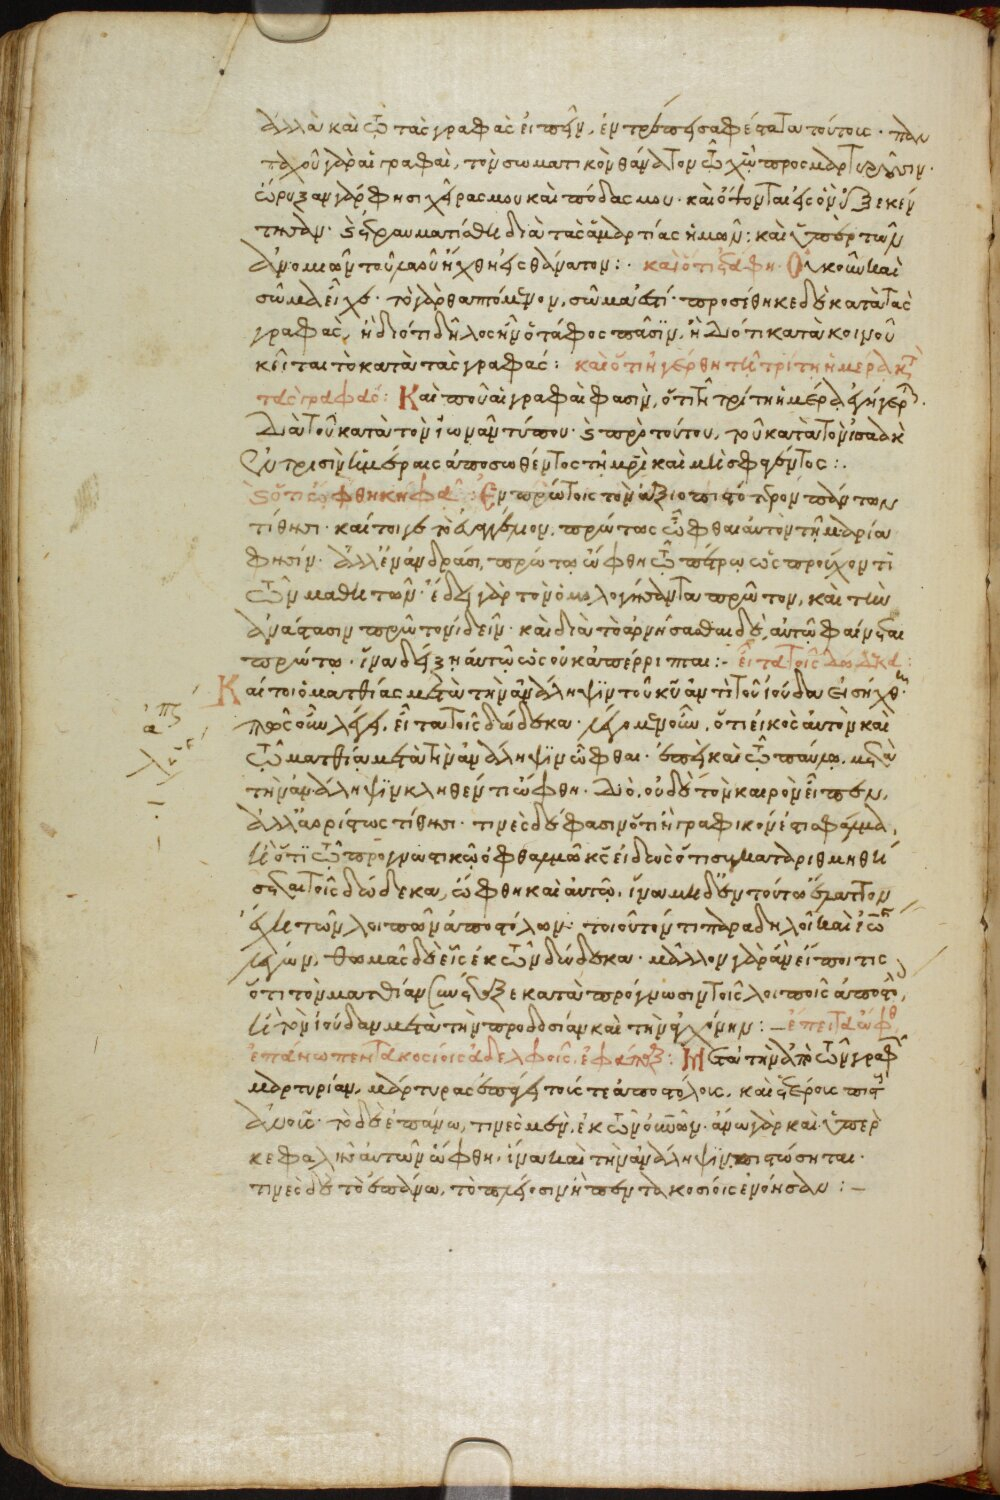 ἀλλὰ καὶ τῷ τὰς γραφὰς εἰπεῖν, ἐντρέπει σαφέστατα τούτοις· παν
ταχοῦ γὰρ αἱ γραφαὶ, τὸν σωματικὸν θάνατον τῷ χῷ προσμαρτυροῦσιν·
ὤρυξαν γάρ φησι χεῖρας μου καὶ πόδας μου· καὶ ὄψονται εἰς ὃν ἐξεκέν
τησαν· καὶ ἐτραυματίσθη διὰ τὰς ἁμαρτίας ἡμῶν: καὶ ὑπὲρ τῶν
ἀνομιῶν τοῦ λαοῦ ἤχθη εἰς θάνατον:· καὶ ὅτι ἐτάφη· Οὐκοῦν καὶ
σῶμα εἶχε· τὸ γὰρ θαπτόμενον, σῶμα ἐστί· προσέθηκε δὲ κατὰ τὰς
γραφὰς, ἢ διότι δῆλος ἦν ὁ τάφος πᾶσιν, ἢ διότι κατὰ κοινοῦ
κεῖται τὸ κατὰ τὰς γραφάς: καὶ ὅτι ἐγέρθη τῇ τρίτῃ ἡμέρᾳ κτ
τὰς γραφάς: Καὶ ποῦ αἱ γραφαὶ φασὶν, ὅτι τῇ τρίτῃ ἡμέρᾳ ἐγήγερτ·
διὰ τοῦ κατὰ τὸν ἰωνᾶν τύπου· καὶ πρὸ τούτου, τοῦ κατὰ τὸν ἰσαὰκ
ἐν τρισὶν ἡμέραις ἀποσωθέντος τῇ μρὶ καὶ μὴ σφαγέντος:·
καὶ ὅτι ὤφθη κηφᾷ: Ἐν πρώτοις τὸν ἀξιοπιστότερον πάντων
τίθησι· καίτοιγε τὸ εὐαγγέλιον, πρώτως ὦφθαι αὐτὸν τῇ μαρίᾳ
φησίν· ἀλλ' ἐν ἀνδράσι, πρώτῳ ὤφθη τῷ πέτρῳ ὡς προύχοντι
τῶν μαθητῶν· ἔδει γὰρ τὸν ὁμολογήσαντα πρῶτον, καὶ τὴν
ἀνάστασιν πρῶτον ἰδεῖν· καὶ διὰ τὸ ἀρνήσασθαι δὲ, αὐτῷ φαίνεται
πρώτῳ· ἵνα δείξῃ αὐτῷ ὡς οὐκ ἀπέρριπται:- εἶτα τοῖς δώδεκα:
Καίτοι ὁ ματθίας μετὰ τὴν ἀνάληψιν τοῦ κυ ἀντὶ τοῦ ἰούδα εἰσήχθη·
πῶς οὖν λέγει, εἶτα τοῖς δώδεκα· λέγομεν οὖν, ὅτι εἰκὸς αὐτὸν καὶ
τῷ ματθίᾳ μετὰ τὴν ἀνάληψιν ὦφθαι· ἐπεὶ καὶ τῷ παύλῳ, μετὰ
τὴν ἀνάληψιν κληθέντι ὤφθη· διὸ, οὐδὲ τὸν καιρὸν εἶπεν,
ἀλλ' ἀορίστως τίθησι· τινὲς δὲ φασὶν ὅτι ἢ γραφικόν ἐστι σφάλμα,
ἢ ὅτι τῷ προγνωστικῷ ὀφθαλμῷ κς εἰδὼς ὅτι συγκαταριθμηθή
σεται τοῖς δώδεκα, ὤφθη καὶ αὐτῷ, ἵνα μηδὲν τούτῳ ἔλαττον
ἔχῃ τῶν λοιπῶν ἀποστόλων· τοιοῦτόν τι παραδηλοῖ καὶ ἰω
λέγων, θωμᾶς δὲ εἷς ἐκ τῶν δώδεκα· μᾶλλον γὰρ ἂν εἴποι τις
ὅτι τὸν ματθίαν συνέταξε κατὰ πρόγνωσιν τοῖς λοιποῖς ἀποστ,
ἢ τὸν ἰούδαν μετὰ τὴν προδοσίαν καὶ τὴν ἀγχόνην:— ἔπειτα ὤφθ
ἐπάνω πεντακοσίοις ἀδελφοῖς, ἐφάπαξ: Μετὰ τὴν ἀπὸ τῶν γραφ
μαρτυρίαν, μάρτυρας ἐπάγει τούς τε ἀποστόλους, καὶ ἑτέροις πιστ
ἀνοις· τὸ δὲ ἐπάνω, τινὲς μὲν, ἐκ τῶν οὐνῶν· ἄνω γὰρ καὶ ὑπὲρ
κεφαλῆς αὐτῶν ὤφθη· ἵνα καὶ τὴν ἀνάληψιν πιστώσηται·
τινὲς δὲ τὸ ἐπάνω, τὸ πλείοσιν ἢ πεντακοσίοις ἐνόησαν:—